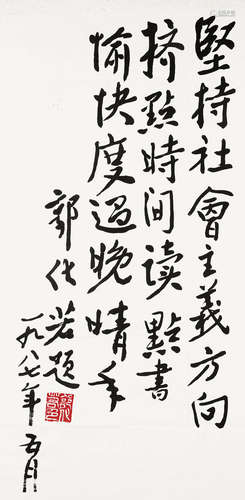 堅持社會主義方向
擠點時间读點書
愉快度過晚晴年
郭化若題
一九八七年五月